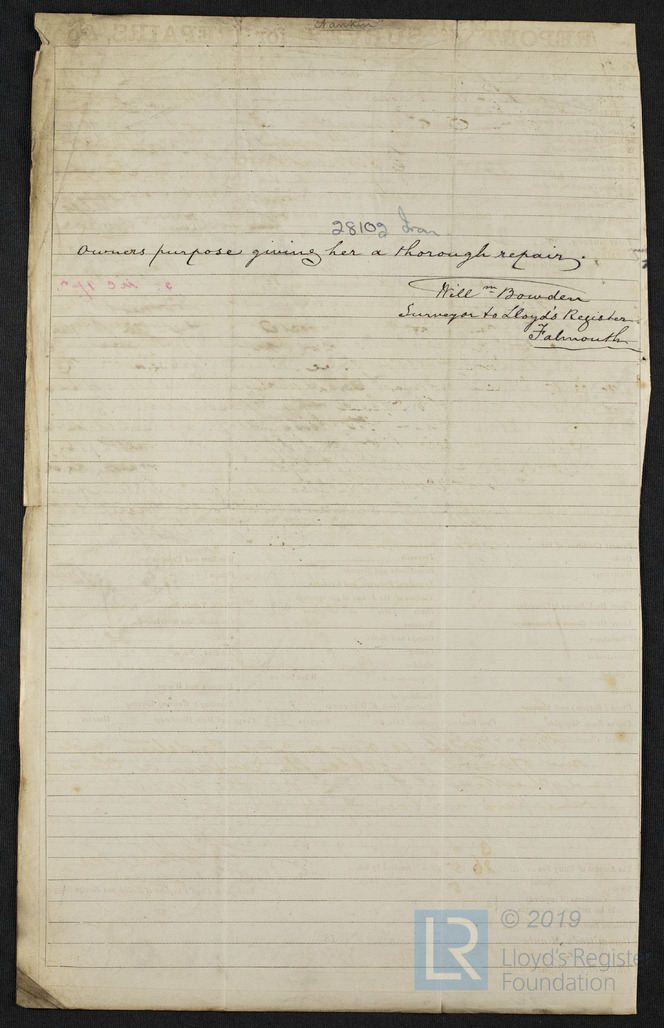 Nankin
28102 Iron
owners purpose giving her a thorough repair.
Will^m Bowden
Surveyor to Lloyd's Register
Falmouth
LR
© 2019
Lloyd's Register
Foundation